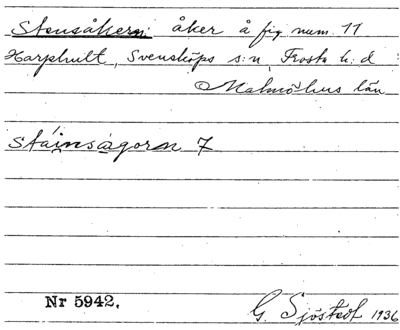 Stensåkern: åker å fig num. 11
Harphult, Svensköps s:n, Frosta h:d
Malmöhus län
stáinságorn 7
Nr 5942.
G. Sjöstedt 1936